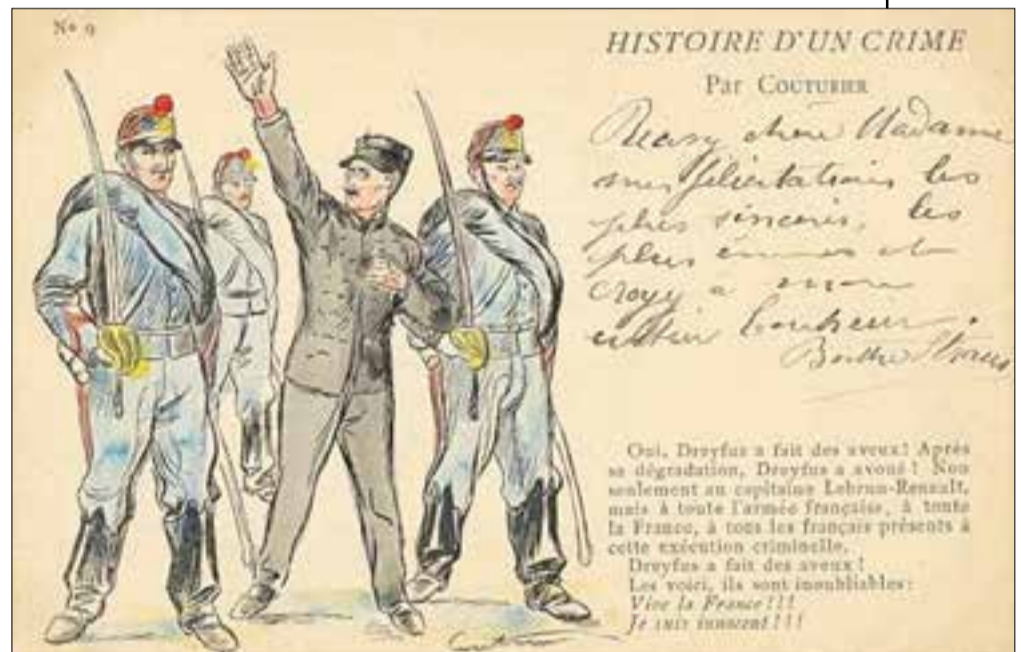 No 9
HISTOIRE D'UN CRIME
Par COUTURIER
chère Madame
mes félicitations les
plus sincères, les
plus émues et
croyez à mon
entier bonheur.
Berthe
Oui, Dreyfus a fait des aveux! Après
sa dégradation, Dreyfus a avoué! Non
seulement au capitaine Lebrun-Renault,
mais à toute l'armée française, à toute
la France, à tous les français présents à
cette exécution criminelle.
Dreyfus a fait des aveux!
Les voici, ils sont inoubliables:
Vive la France!!!
Je suis innocent!!!